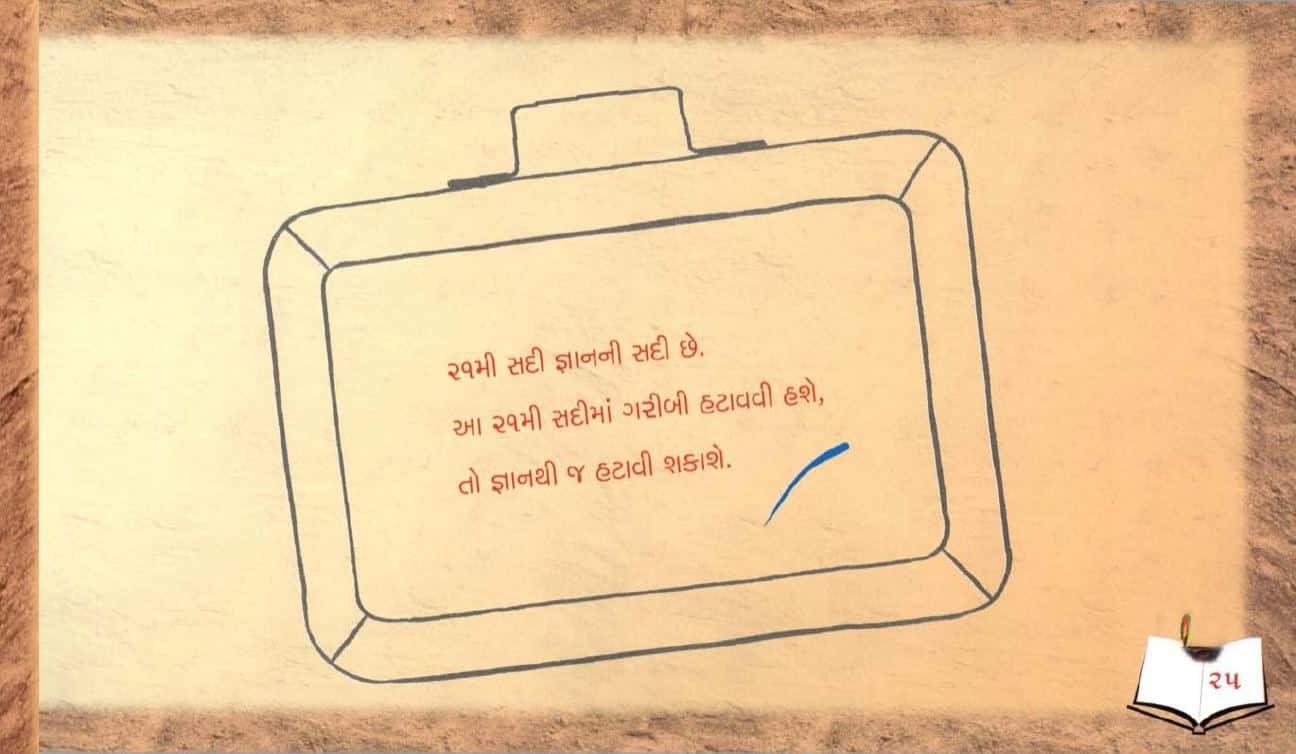 ૨૧મી સદી જ્ઞાનની સદી છે.
આ ૨૧મી સદીમાં ગરીબી હટાવવી હશે,
તો જ્ઞાનથી જ હટાવી શકાશે.
૨૫